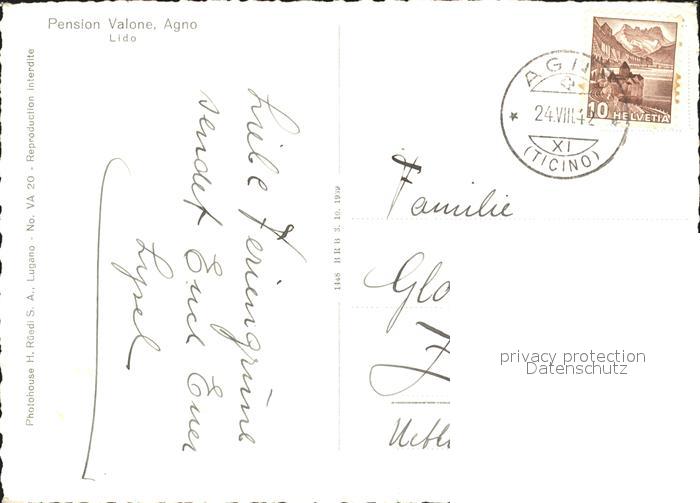 Pension Valone, Agno
Lido
Photohouse H. Rüedi S. A., Lugano - No. VA 20 - Reproduction interdite
Liebe Feriengrüsse
sendet Euch Euer
1448 HRB 3. 10. 1939
AGNO
24.VIII.42
XI
(TICINO)
10 HELVETIA
Familie
Glo
privacy protection
Datenschutz